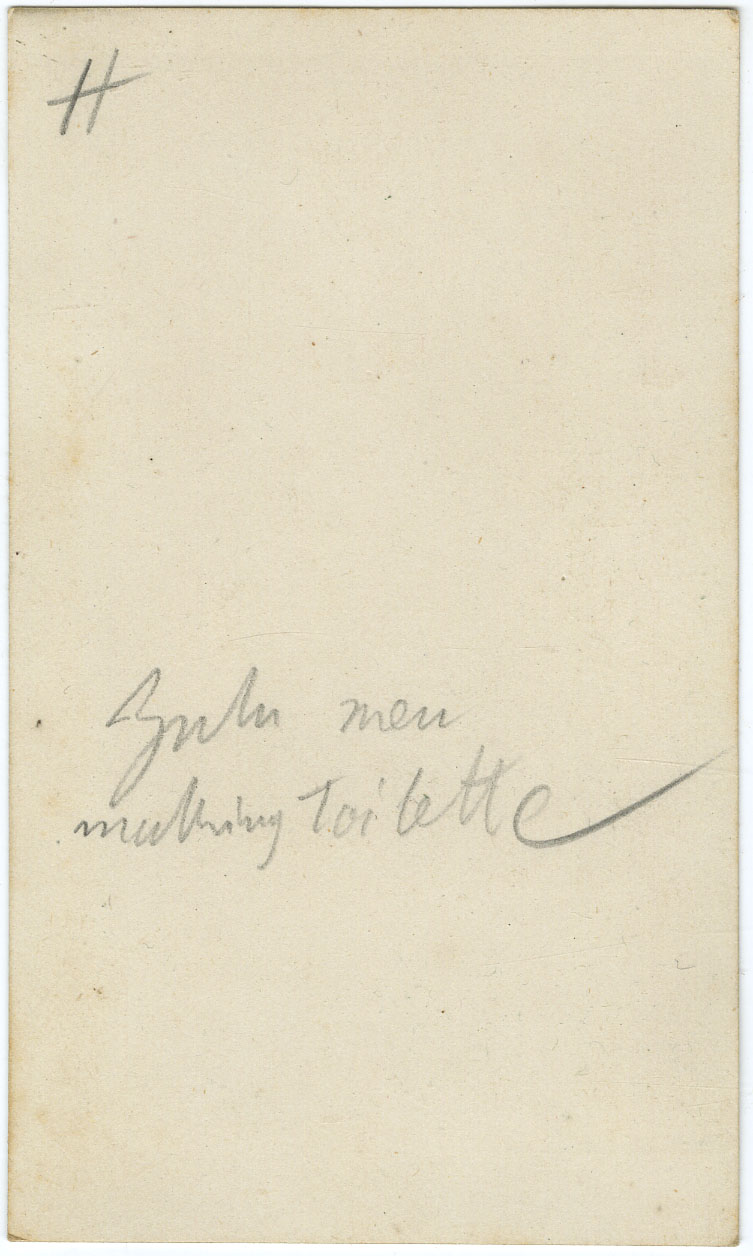 H
Zulu men
making Toilette